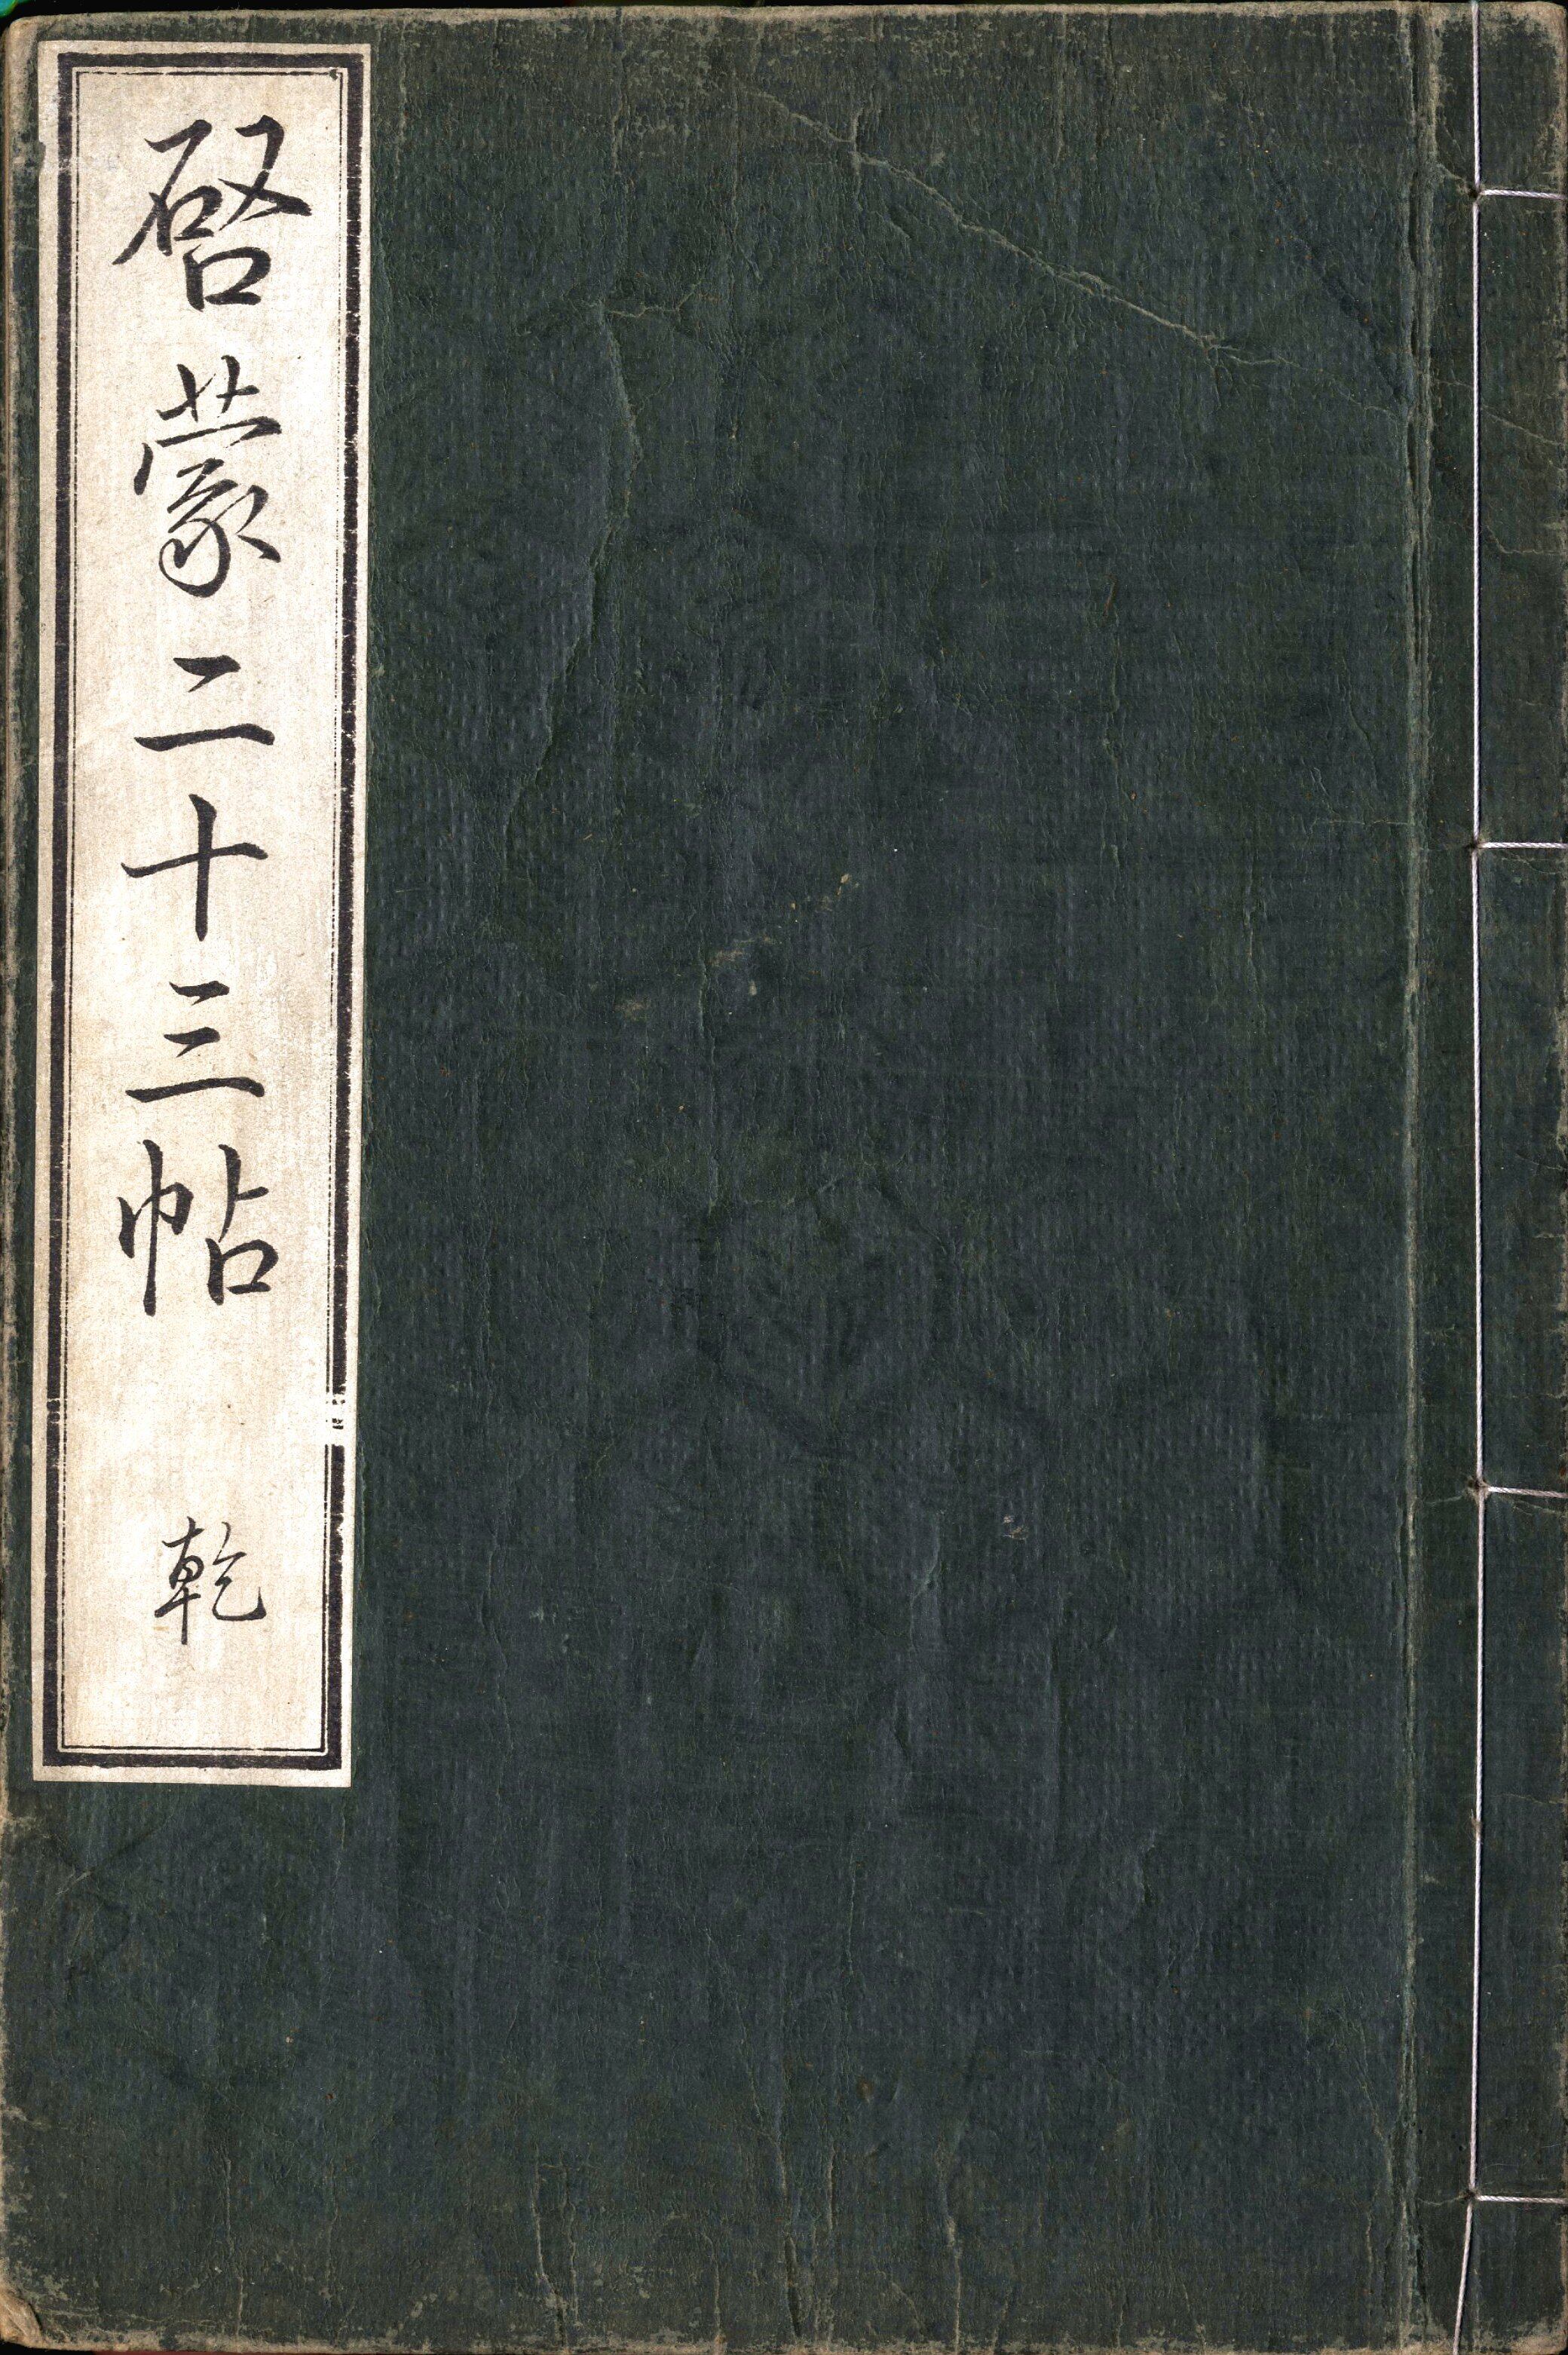 啓蒙二十三帖
乾